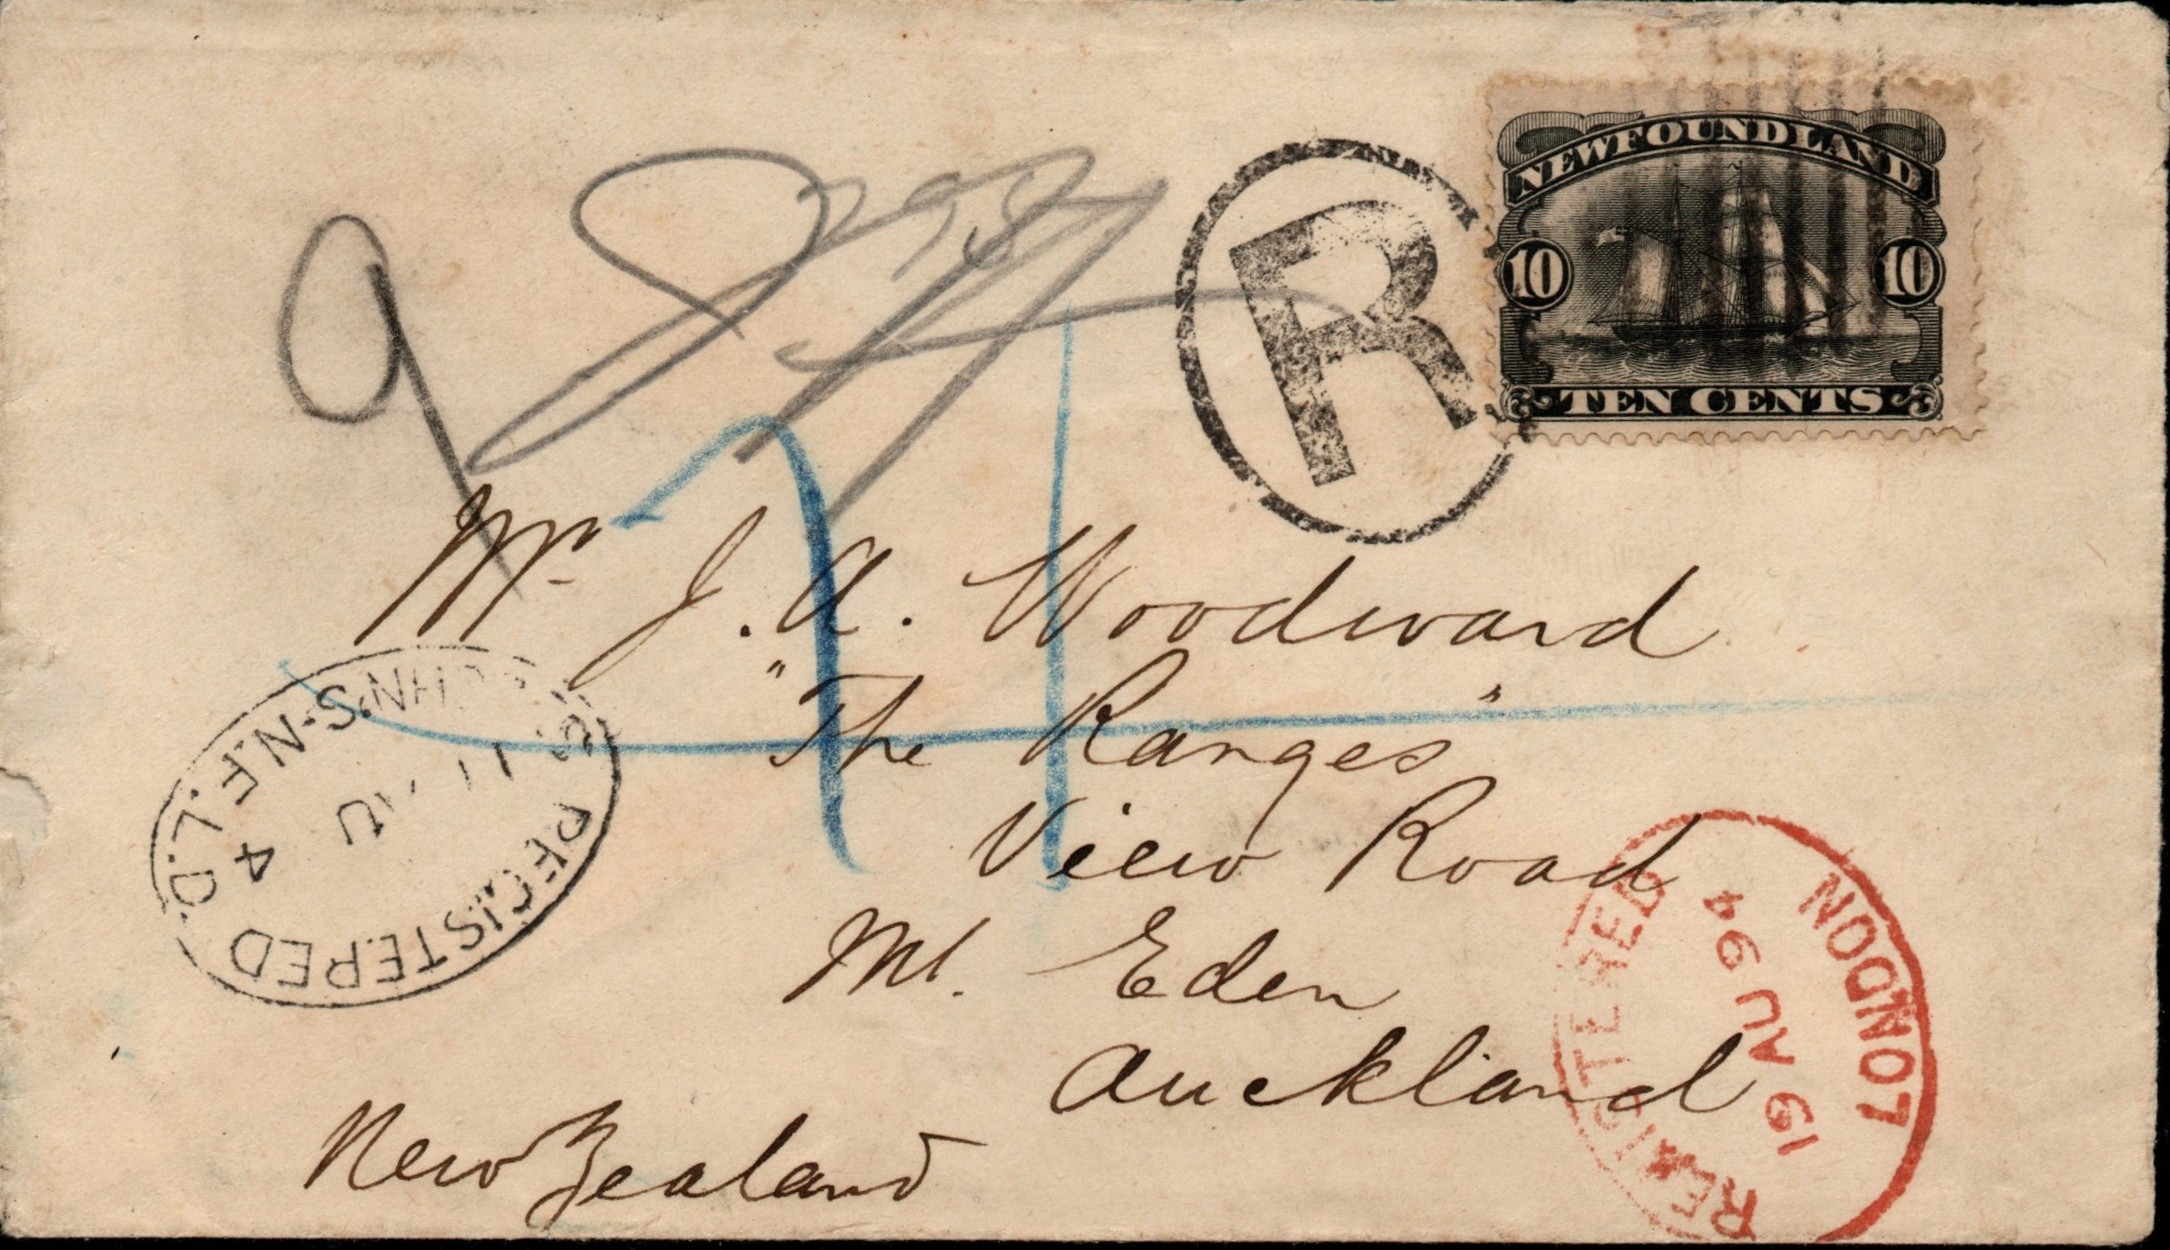 NEWFOUNDLAND
10 10
TEN CENTS
R
9
Mr J. A. Woodward
"The Ranges"
View Road
Mt. Eden
Auckland
New Zealand
REGISTERED
N.F.L.D.
AU
4
REGISTERED
LONDON
19 AU 94